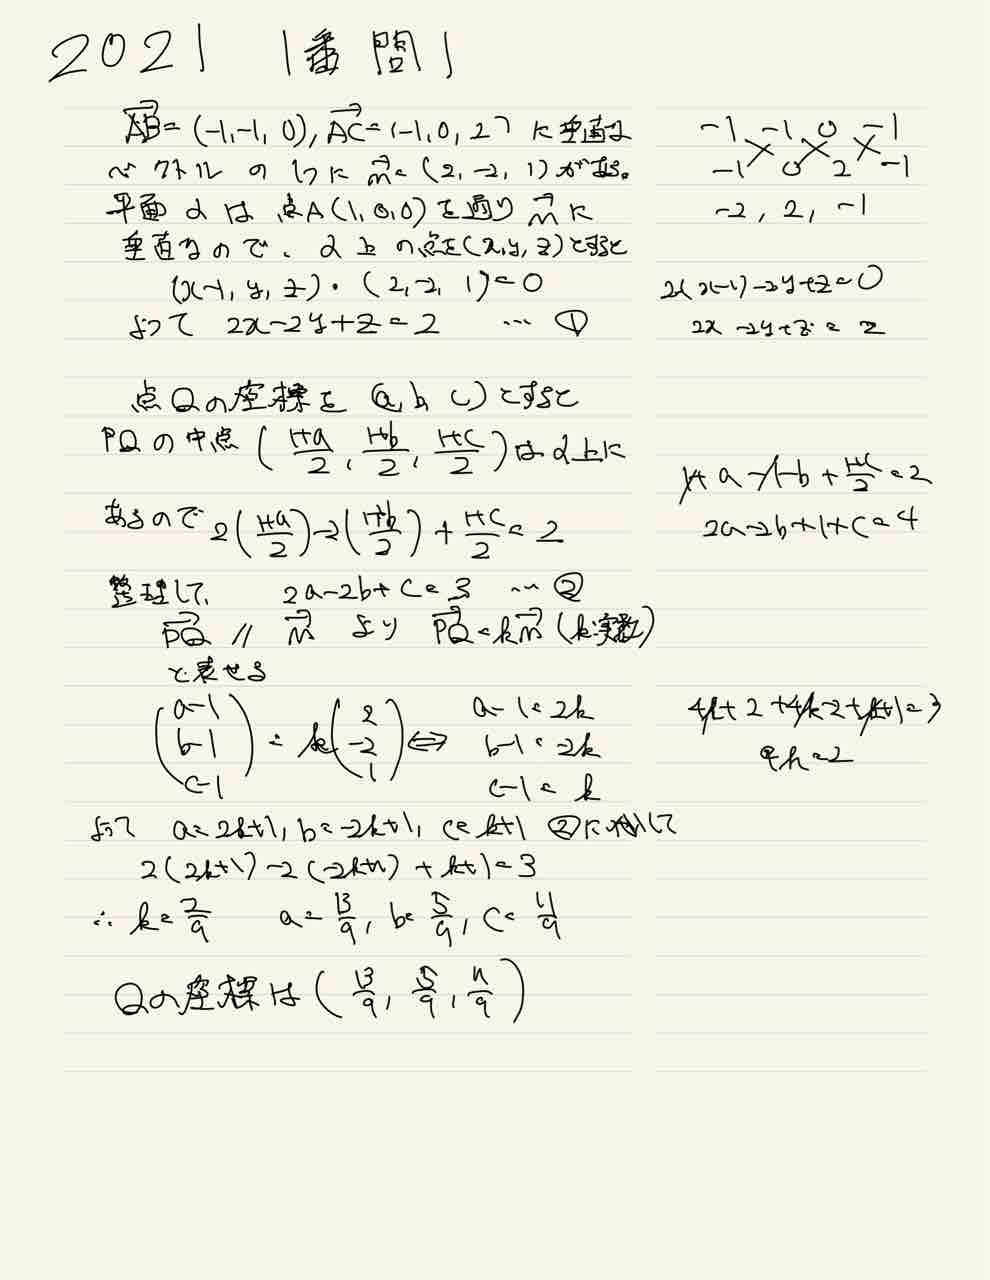 2021 1番 問1
$\overrightarrow{AB}=(-1,-1,0), \overrightarrow{AC}=(-1,0,2)$ に垂直な
ベクトルの1つに $\vec{n}=(2,-2,1)$ がある。
平面 α は 点A(1,0,0)を通り $\vec{n}$ に
垂直なので、α上の点を(x,y,z)とすると
(x-1, y, z)・(2,-2,1)=0
よって 2x-2y+z=2 … ①
点Qの座標を (a, b, c) とすると
PQの中点 $\left(\frac{1+a}{2}, \frac{1+b}{2}, \frac{1+c}{2}\right)$ は α上に
あるので $2\left(\frac{1+a}{2}\right)-2\left(\frac{1+b}{2}\right)+\frac{1+c}{2}=2$
整理して、 2a-2b+c=3 … ②
$\overrightarrow{PQ}$ // $\vec{n}$ より $\overrightarrow{PQ}=k\vec{n}$ (k:実数)
と表せる
$\begin{pmatrix} a-1 \\ b-1 \\ c-1 \end{pmatrix} = k\begin{pmatrix} 2 \\ -2 \\ 1 \end{pmatrix}$ ⇔ a-1=2k
b-1=-2k
c-1=k
よって a=2k+1, b=-2k+1, c=k+1 ②に代入して
2(2k+1)-2(-2k+1)+k+1=3
∴ $k=\frac{2}{9}$ $a=\frac{13}{9}, b=\frac{5}{9}, c=\frac{11}{9}$
Qの座標は $\left(\frac{13}{9}, \frac{5}{9}, \frac{11}{9}\right)$
-1 -1 0 -1
-1 0 2 -1
-2, 2, -1
2(x-1)-2y+z=0
2x-2y+z=2
1+a-1-b+$\frac{1+c}{2}$=2
2a-2b+1+c=4
4k+2+4k-2+k+1=3
9k=2